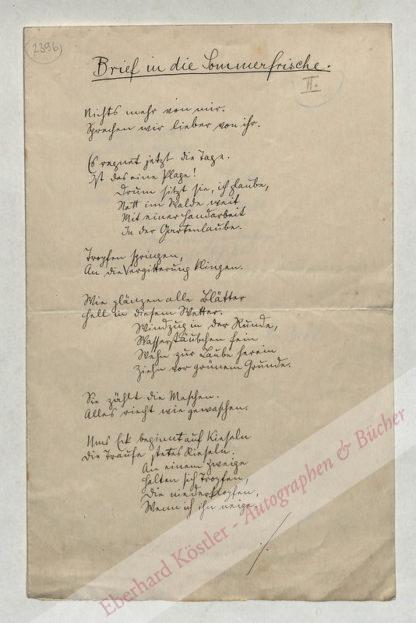 (2396)
Brief in die Sommerfrische.
II.
Nichts mehr von mir.
Sprechen wir lieber von ihr.
Es regnet jetzt die Tage.
Ist das eine Plage!
Drum sitzt sie, ich glaube,
Nett im Walde weit,
Mit einer Handarbeit
In der Gartenlaube.
Tropfen springen,
An die Vergitterung klingen.
Wie glänzen alle Blätter
hell in diesem Wetter.
Windzug in der Runde,
Wasserstäubchen fein
Wehn zur Laube herein
Ziehn vor grünem Grunde.
Sie zählt die Maschen.
Alles riecht wie gewaschen.
Ums Eck beginnt auf Kieseln
Die Traufe stetes Rieseln.
An einem Zweige
halten sich Tropfen,
Die niederklopfen,
Wenn ich ihn neige.
Eberhard Köstler - Autographen & Bücher